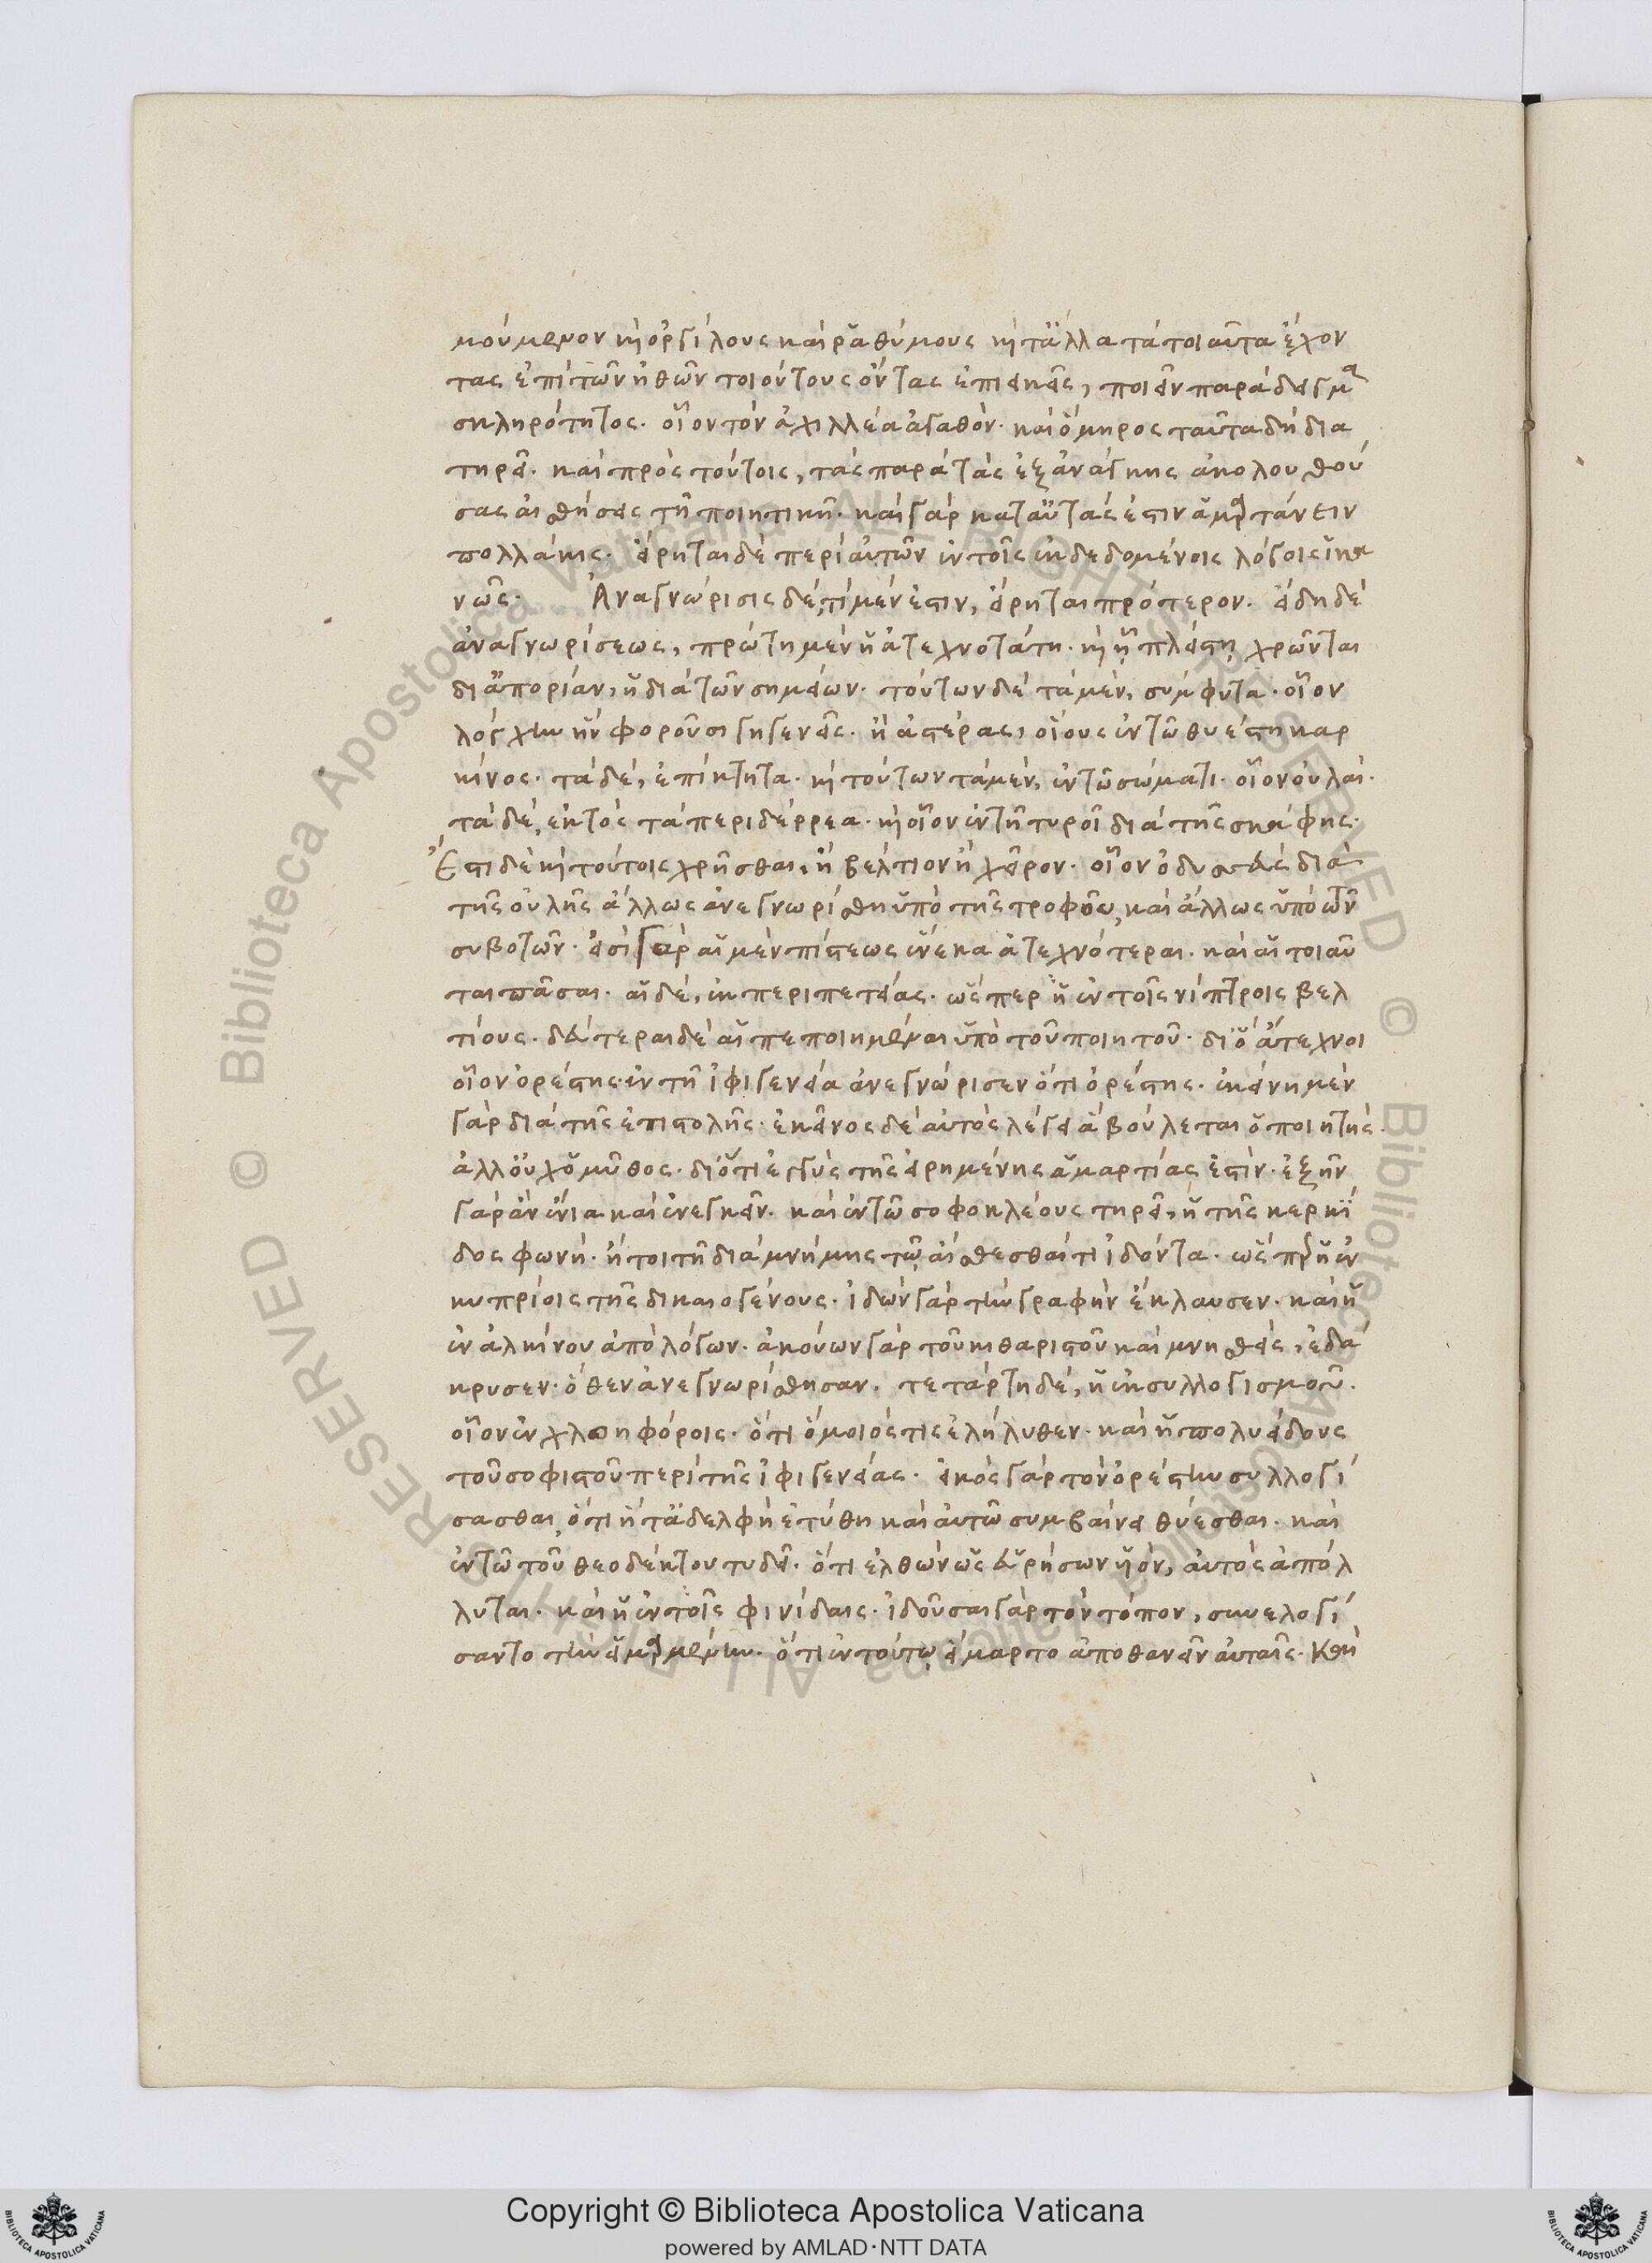 μούμενον κὴ ὀργίλους καὶ ῥαθύμους κὴ τἄλλα τὰ τοιαῦτα ἔχον
τας ἐπὶ τῶν ἠθῶν τοιούτους ὄντας ἐπιεικεῖς, ποιεῖν παράδειγμα
σκληρότητος. οἷον τὸν ἀχιλλέα ἀγαθὸν. καὶ ὅμηρος ταῦτα δὴ δια
τηρεῖ. καὶ πρὸς τούτοις, τὰς παρὰ τὰς ἐξανάγκης ἀκολουθού
σας αἰσθήσεις τῇ ποιητικῇ. καὶ γὰρ κατ αὐτὰς ἔστιν ἁμαρτάνειν
πολλάκις. εἴρηται δὲ περὶ αὐτῶν ἐν τοῖς ἐκδεδομένοις λόγοις ἱκα
νῶς. Ἀναγνώρισις δὲ, τί μέν ἐστιν, εἴρηται πρότερον. εἴδη δὲ
ἀναγνωρίσεως, πρώτη μὲν ἡ ἀτεχνοτάτη. κὴ ᾗ πλείστῃ χρῶνται
δι ἀπορίαν, ἡ διὰ τῶν σημείων. τούτων δὲ τὰ μὲν, σύμφυτα. οἷον
λόγχην ἣν φοροῦσι γηγενεῖς. ἢ ἀστέρας, οἵους ἐν τῷ θυέστῃ καρ
κίνος. τὰ δὲ, ἐπίκτητα. κὴ τούτων τὰ μὲν, ἐν τῷ σώματι. οἷον οὐλαί.
τὰ δὲ, ἐκτὸς τὰ περιδέρρεα. κὴ οἷον ἐν τῇ τυροῖ διὰ τῆς σκάφης.
Ἔστι δὲ κὴ τούτοις χρῆσθαι, ἢ βέλτιον ἢ χεῖρον. οἷον ὀδυσσεὺς διὰ
τῆς οὐλῆς ἄλλως ἀνεγνωρίσθη ὑπὸ τῆς τροφοῦ, καὶ ἄλλως ὑπὸ τῶν
συβοτῶν. εἰσὶ γὰρ αἱ μὲν πίστεως ἕνεκα ἀτεχνότεραι. καὶ αἱ τοιαῦ
ται πᾶσαι. αἱ δὲ, ἐκ περιπετείας. ὥσπερ ἡ ἐν τοῖς νίπτροις βελ
τίους. δεύτεραι δὲ αἱ πεποιημέναι ὑπὸ τοῦ ποιητοῦ. διὸ ἄτεχνοι
οἷον ὀρέστης ἐν τῇ ἰφιγενείᾳ ἀνεγνώρισεν ὅτι ὀρέστης. ἐκείνη μὲν
γὰρ διὰ τῆς ἐπιστολῆς. ἐκεῖνος δὲ αὐτὸς λέγει ἃ βούλεται ὁ ποιητὴς.
ἀλλ οὐχ ὁ μῦθος. διὸ τι ἐγγὺς τῆς εἰρημένης ἁμαρτίας ἐστὶν. ἐξῆν
γὰρ ἂν ἔνια καὶ ἐνεγκεῖν. καὶ ἐν τῷ σοφοκλέους τηρεῖ, ἡ τῆς κερκί
δος φωνή. ἤτοι τῇ διὰ μνήμης τῷ αἴσθεσθαί τι ἰδόντα. ὥσπερ ἡ ἐν
κυπρίοις τῆς δικαιογένους. ἰδὼν γὰρ τὴν γραφὴν ἔκλαυσεν. καὶ ἡ
ἐν ἀλκίνου ἀπὸ λόγων. ἀκούων γὰρ τοῦ κιθαριστοῦ καὶ μνησθεὶς, ἐδά
κρυσεν. ὅθεν ἀνεγνωρίσθησαν. τετάρτη δὲ, ἡ ἐκ συλλογισμοῦ.
οἷον ἐν χλοηφόροις. ὅτι ὅμοιός τις ἐλήλυθεν. καὶ ἡ πολυείδους
τοῦ σοφιστοῦ περὶ τῆς ἰφιγενείας. εἰκὸς γὰρ τὸν ὀρέστην συλλογί
σασθαι, ὅτι ἥ τ ἀδελφὴ ἐτύθη καὶ αὐτῷ συμβαίνει θύεσθαι. καὶ
ἐν τῷ τοῦ θεοδέκτου τυδεῖ. ὅτι ἐλθὼν ὡς εὑρήσων υἱὸν, αὐτὸς ἀπόλ
λυται. καὶ ἡ ἐν τοῖς φινίδαις. ἰδοῦσαι γὰρ τὸν τόπον, συνελογί
σαντο τὴν εἱμαρμένην. ὅτι ἐν τούτῳ εἵμαρτο ἀποθανεῖν αὐταῖς. Καὶ
Copyright © Biblioteca Apostolica Vaticana
powered by AMLAD·NTT DATA